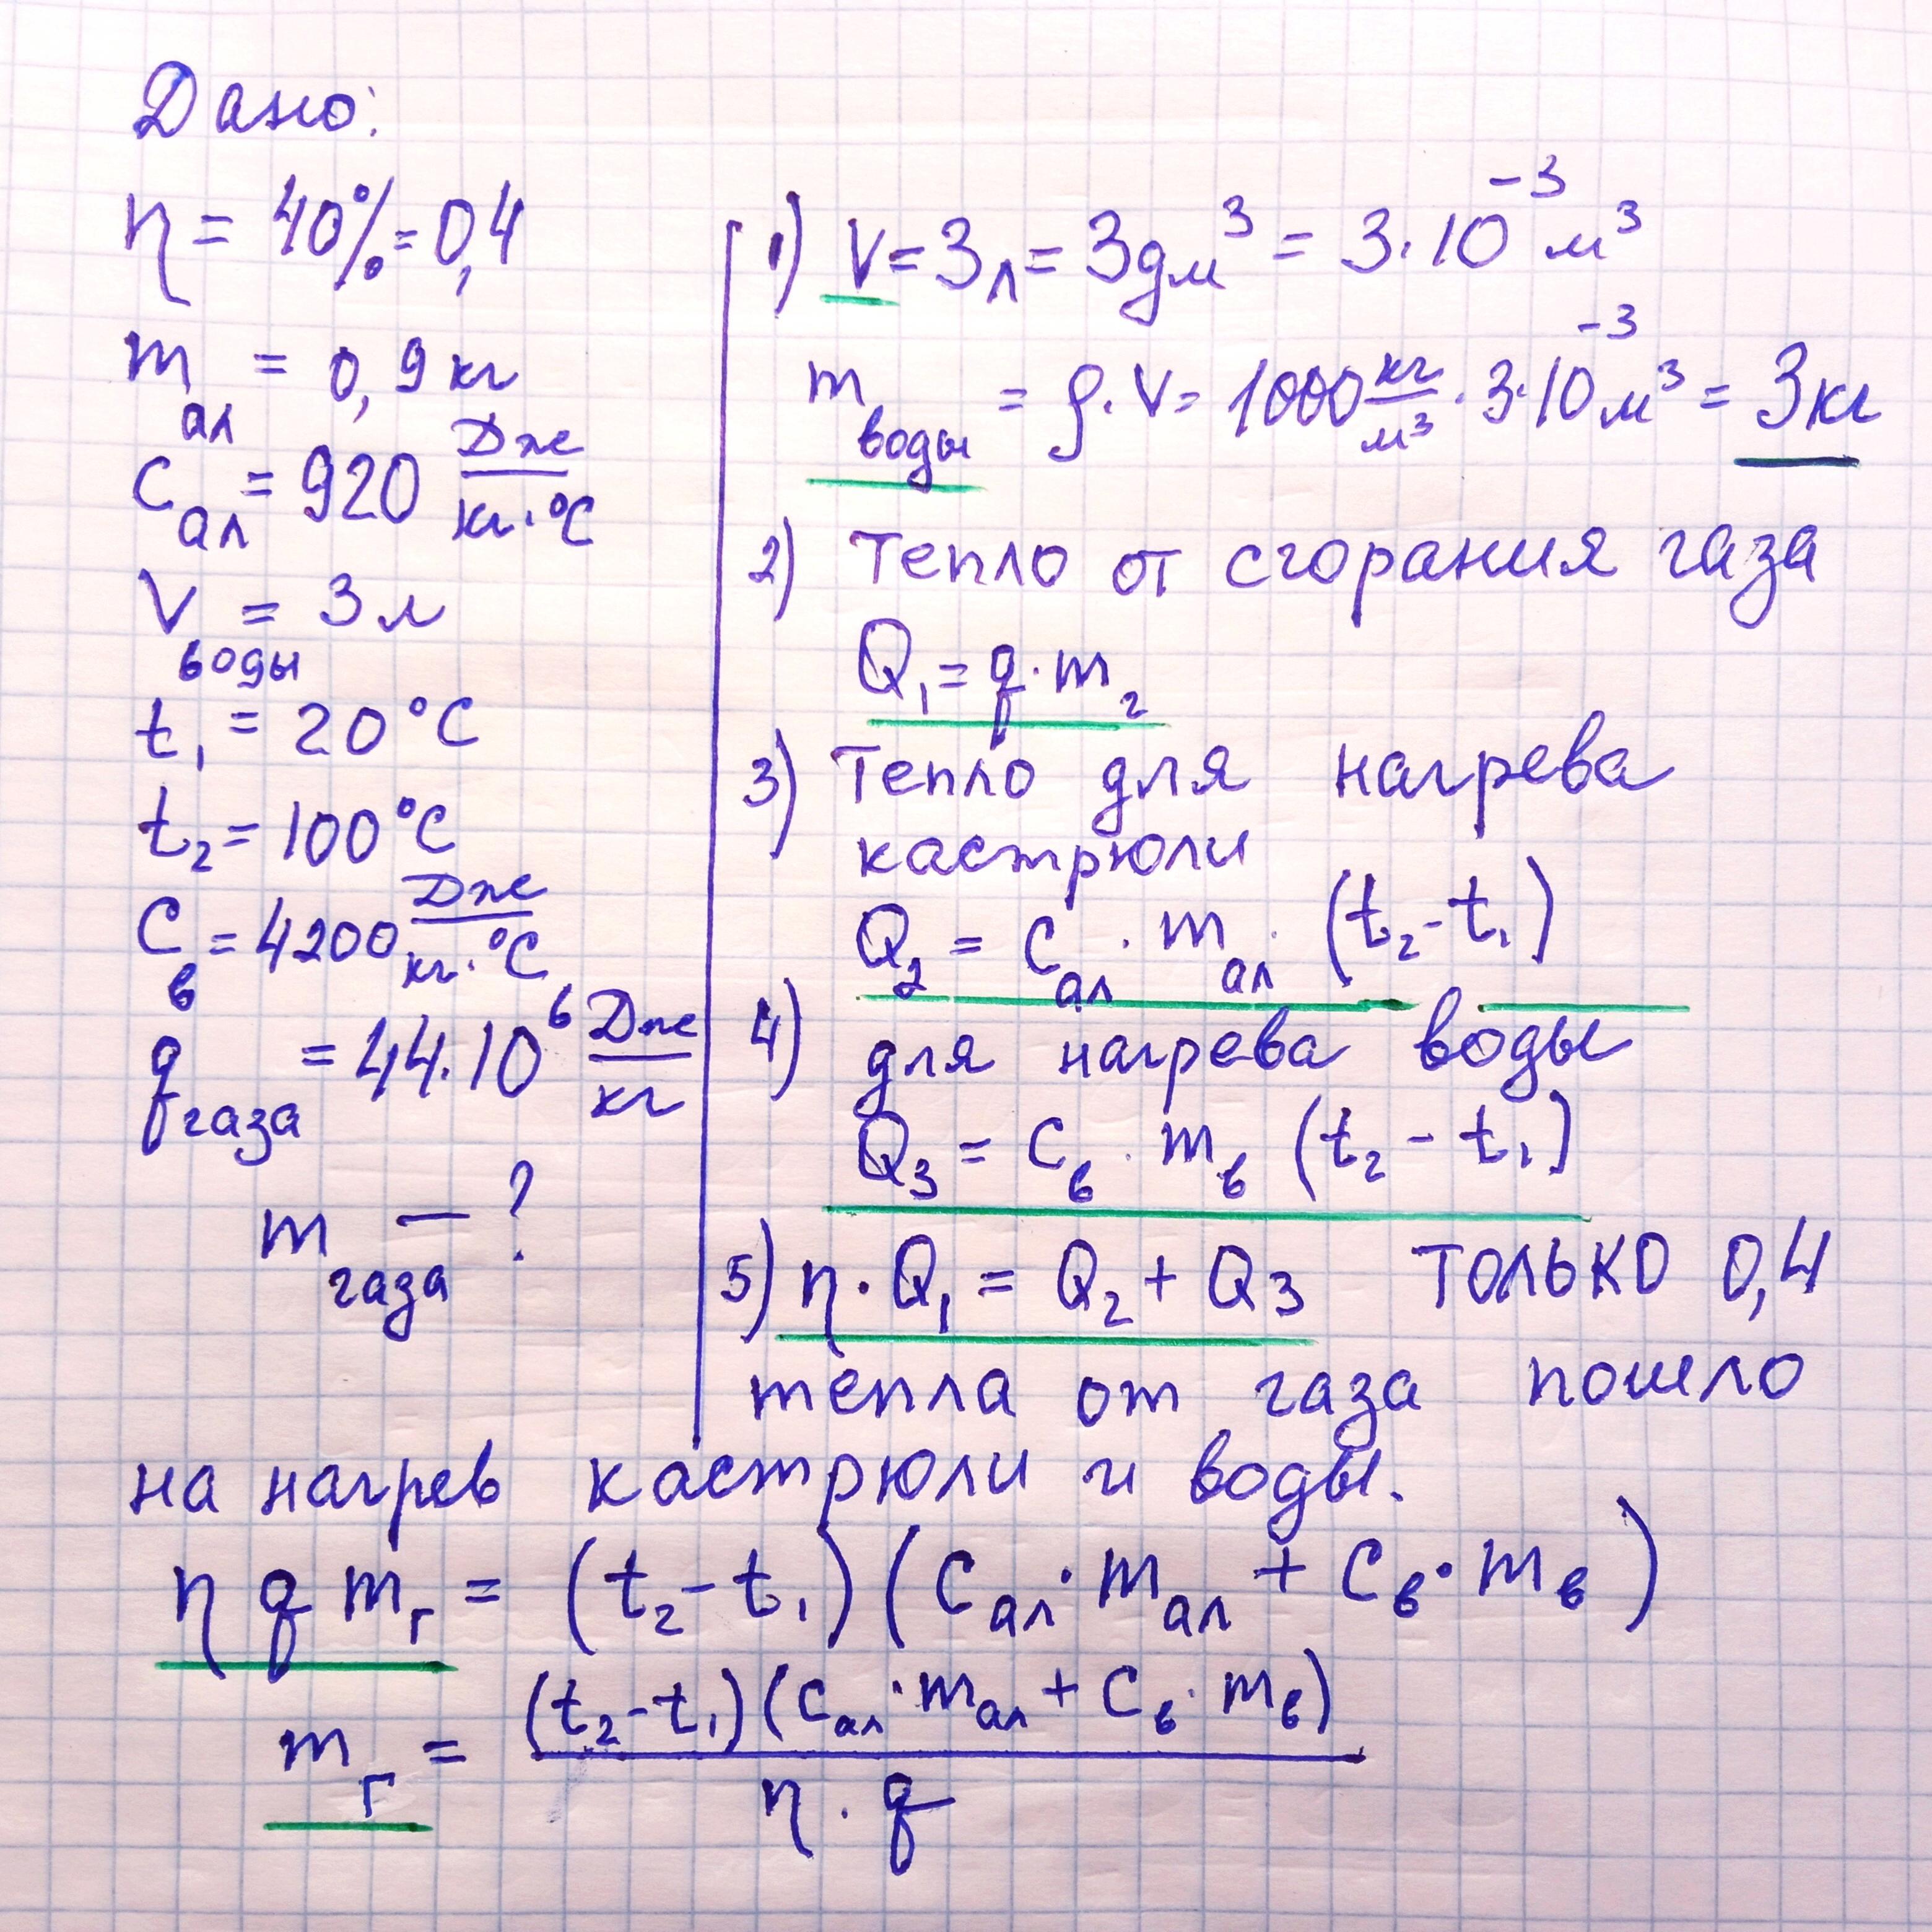 Дано:
η = 40% = 0,4
m ал = 0,9 кг
C ал = 920 Дж/кг·°C
V воды = 3 л
t₁ = 20 °C
t₂ = 100 °C
C в = 4200 Дж/кг·°C
q газа = 44·10⁶ Дж/кг
m газа — ?
1) V = 3л = 3дм³ = 3·10⁻³ м³
m воды = ρ·V = 1000 кг/м³ · 3·10⁻³ м³ = 3кг
2) Тепло от сгорания газа
Q₁ = q·m г
3) Тепло для нагрева
кастрюли
Q₂ = C ал · m ал · (t₂-t₁)
4) для нагрева воды
Q₃ = C в · m в (t₂ - t₁)
5) η·Q₁ = Q₂ + Q₃ только 0,4
тепла от газа пошло
на нагрев кастрюли и воды.
η q m г = (t₂ - t₁)(C ал · m ал + C в · m в)
m г = (t₂-t₁)(C ал · m ал + C в · m в) / η · q